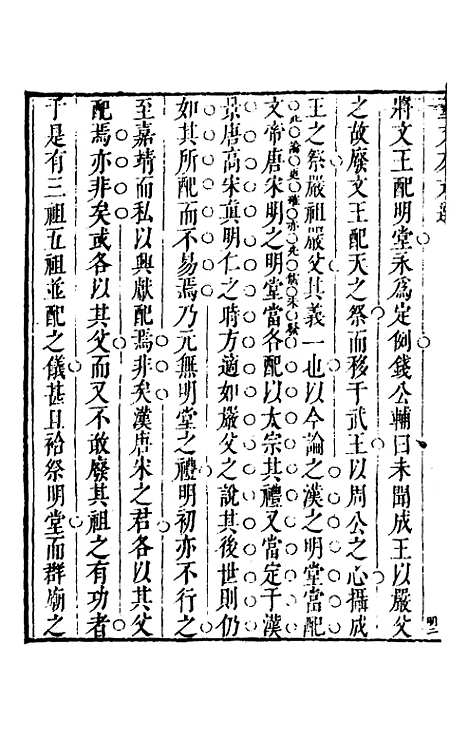 將文王配明堂永爲定例錢公輔曰未聞成王以嚴父
之故廢文王配天之祭而移于武王以周公之心攝成
王之祭嚴祖嚴父其義一也以今論之漢之明堂當配
此論更確亦先獻未發
文帝唐宋明之明堂當各配以太宗其禮又當定于漢
景唐高宋眞明仁之時方適如嚴父之說其後世則仍
如其所配而不易焉乃元無明堂之禮明初亦不行之
至嘉靖而私以興獻配焉非矣漢唐宋之君各以其父
配焉亦非矣或各以其父而又不敢廢其祖之有功者
于是有三祖五祖並配之儀甚且祫祭明堂而羣廟之
明二